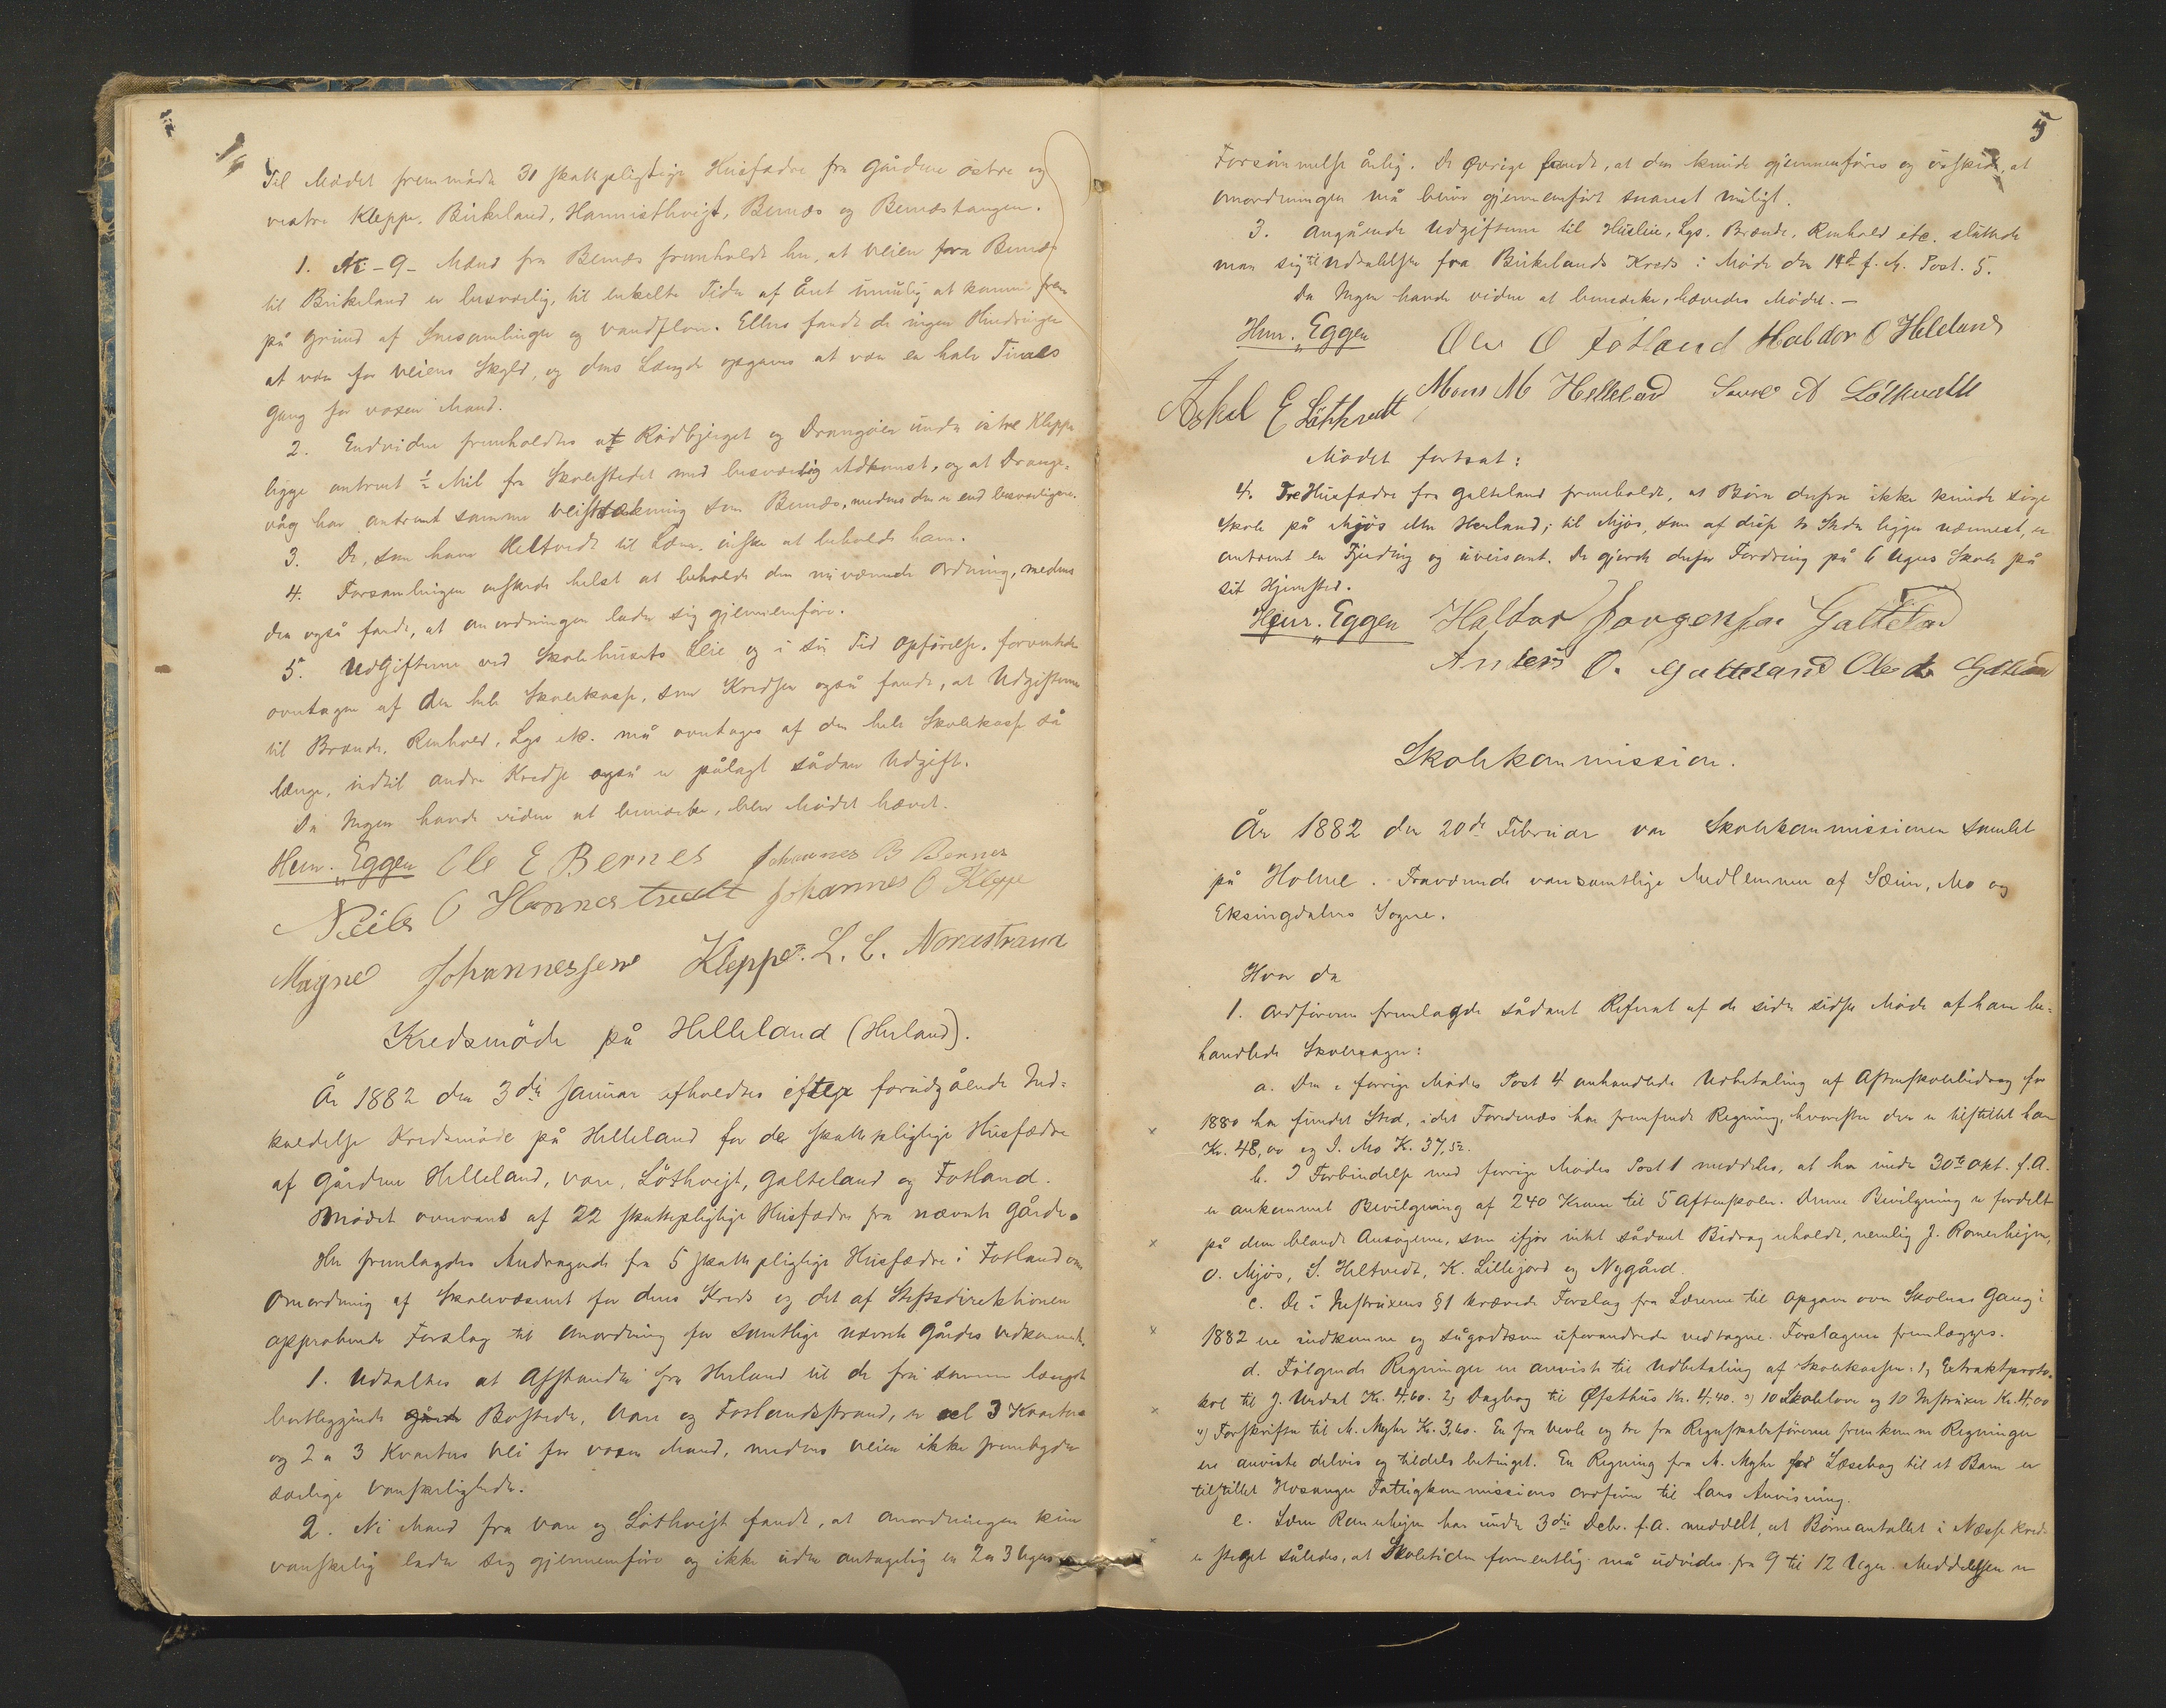 Til Mödet fremmödte 31 skattepligtige Husfædre fra Gårdene östre og
vestre Kleppe, Birkeland, Hannisthveit, Bernæs og Bernæstangen.
1. Ni - 9 - Mænd fra Bernæs fremholdt her, at Veien fra Bernæs
til Birkeland er besværlig, til enkelte Tider af Året umulig at komme frem
på Grund af Snesamlinger og Vandflom. Ellers fandt de ingen Hindringer
at være for Veiens Skyld, og dens Længde opgaves at være en halv Times
Gang for voxen Mand.
2. Endvidere fremholdtes at Rödbjerget og Drangöien under östre Kleppe
ligge omtrent ½ Mil fra Skolestedet med besværlig Adkomst, og at Drange-
våg har omtrent samme Veistrækning som Bernæs, medens den er end besværligere.
3. De, som have Heltvedt til Lærer, önske at beholde ham.
4. Forsamlingen önskede helst at beholde den nuværende Ordning, medens
den også fandt, at Omordningen lader sig gjennemföre.
5. Udgifterne ved Skolehusets Leie og i sin Tid Opförelse, forventede
overtagen af den hele Skolekasse, som Kredsen også fandt, at Udgifterne
til Brænde, Renhold, Lys etc. må overtages af den hele Skolekasse så
længe, indtil andre Kredse også er pålagt sådan Udgift.
Da Ingen havde videre at bemærke, blev Mödet hævet.
Henr. Eggen Ole E Bernes Johannes B Bernes
Neils O Hannestvedt Johannes O Kleppe
Magne Johannessen Kleppe. L. L. Nordstrand
Kredsmöde på Helleland (Herland).
År 1882 den 3die Januar afholdtes efter forudgående Ind-
kaldelse Kredsmöde på Helleland for de skattepligtige Husfædre
af Gårdene Helleland, Vare, Löthveit, Galteland og Fotland.
Mödet overvares af 22 skattepligtige Husfædre fra nævnte Gårde.
Her fremlagdes Andragende fra 5 skattepligtige Husfædre i Fotland om
Omordning af Skolevæsenet for deres Kreds og det af Stiftsdirektionen
approberede Forslag til Omordning for samtlige nævnte Gårdes Vedkommende.
1. Udtaltes at Afstanden fra Herland til de fra samme længst
bortliggende Bosteder, Vare og Fotlandsstrand, er vel 3 Kvarter
og 2 a 3 Kvarters Vei for voxen Mand, medens Veien ikke frembyder
særlige Vanskeligheder.
2. Ni Mænd fra Vare og Löthveit fandt, at Omordningen kun
vanskelig lader sig gjennemföre og ikke uden antagelig en 2 a 3 Ugers
5
Forsömmelse årlig. De Øvrige fandt, at den kunde gjennemföres og önskede, at
Omordningen må blive gjennemfört snarest muligt.
3. Angående Udgifterne til Husleie, Lys, Brænde, Renhold etc. sluttede
man sig til Udtalelsen fra Birkelands Kreds i Möde den 14de f. M. Post. 5.
Da Ingen havde videre at bemærke, hævedes Mödet. —
Henr. Eggen Ole O Fotland Haldor O Heleland
Askel E Löthvedt Mons M Helleland A Löthvedt
Mödet fortsat:
4. Tre Husfædre fra Galteland fremholdt, at Börn derfra ikke kunde söge
Skole på Mjös eller Herland; til Mjös, som af disse to Steder ligger nærmest, er
omtrent en Fjerding og uveisomt. De gjorde derfor Fordring på 6 Ugers Skole på
sit Hjemsted.
Henr. Eggen Haldor Jørgensen Galteland
Anders O. Galteland Ole Galteland
Skolekommission.
År 1882 den 20de Februar var Skolekommissionen samlet
på Holme. Fraværende var samtlige Medlemmer af Sæim, Mo og
Eksingdalens Sogne.
Hvor da
1. Ordföreren fremlagde sådant Referat af de siden sidste Möde af ham be-
handlede Skolesager:
a. Den i forrige Mödes Post 4 omhandlede Udbetaling af Aftenskolebidrag for
1880 har fundet Sted, idet Fordnæs har fremsendt Regning, hvorefter der er tilstillet ham
Kr. 48,00 og I. Mo K. 37,52.
b. I Forbindelse med forrige Mödes Post 1 meddeles, at her under 30te Okt. f. A.
er ankommet Bevilgning af 240 Kroner til 5 Aftenskoler. Denne Bevilgning er fordelt
på dem blandt Ansögerne, som ifjor intet sådant Bidrag erholdt, nemlig J. Romerheim,
O. Mjös, S. Heltvedt, K. Lillejord og Nygård.
c. De i Instruxens §1 krævede Forslag fra Lærerne til Opgave over Skolens Gang i
1882 ere indkomne og sågodtsom uforandrede vedtagne. Forslagene fremlægges.
d. Fölgende Regninger ere anviste til Udbetaling af Skolekassen: 1, Extraktproto-
kol til J. Urdal Kr. 4,60. 2, Dagbog til Øfsthus Kr. 4,40. 3) 10 Skolelove og 10 Instruxer Kr. 4,00
4) Forskrifter til M. Myhr Kr. 3,60. En fra Vevle og tre fra Regnskabsföreren fremkomne Regninger
ere anviste delvis og tildels betinget. En Regning fra M. Myhr for Læsebog til et Barn er
tilstillet Hosanger Fattigkommissions Ordförer til hans Anvisning.
e. Lærer Romerheim har under 3die Decbr. f. A. meddelt, at Börneantallet i Næsse Kreds
er steget således, at Skoletiden formentlig må udvides fra 9 til 12 Uger. Meddelelsen er